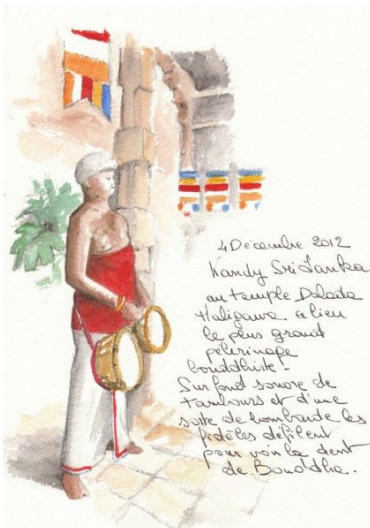 4 Décembre 2012
Kandy Sri Lanka
au temple Dalada
Maligawa a lieu
le plus grand
pèlerinage
bouddhiste -
Sur fond sonore de
tambours et d'une
sorte de bombarde les
fidèles défilent
pour voir la dent
de Bouddha.